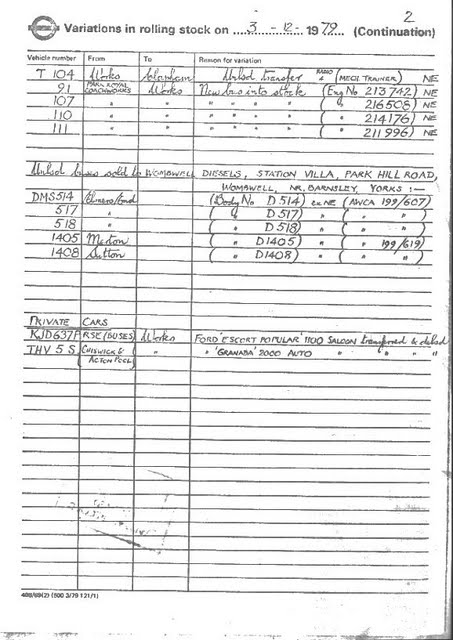 2
Variations in rolling stock on 3 - 12 - 1979 (Continuation)
Vehicle number From To Reason for variation
T 104 Works Clapham Unlsd transfer RADIO & (MECH TRAINER) NE
91 PARK ROYAL COACHWORKS Works New bus into stock (Eng No 213742) NE
107 " " " " " " ( " 216508) NE
110 " " " " " " ( " 214176) NE
111 " " " " " " ( " 211996) NE
Unlsd buses sold to WOMBWELL DIESELS, STATION VILLA, PARK HILL ROAD,
WOMBWELL, NR. BARNSLEY, YORKS :—
DMS514 Elmers/End (Body No D514) ex NE (AWCA 199/607)
517 " ( " D.517) " ( " " )
518 " ( " D518) " ( " " )
1405 Merton ( " D1405) " ( " 199/619)
1408 Sutton ( " D1408) " ( " " )
PRIVATE CARS
KJD637P RSE (BUSES) Works FORD 'ESCORT POPULAR' 1100 SALOON transferred & delsd
THV 5 S CHISWICK & ACTON POOL " " 'GRANADA' 2000 AUTO " " " "
499/69(2) (500 3/79 121/1)